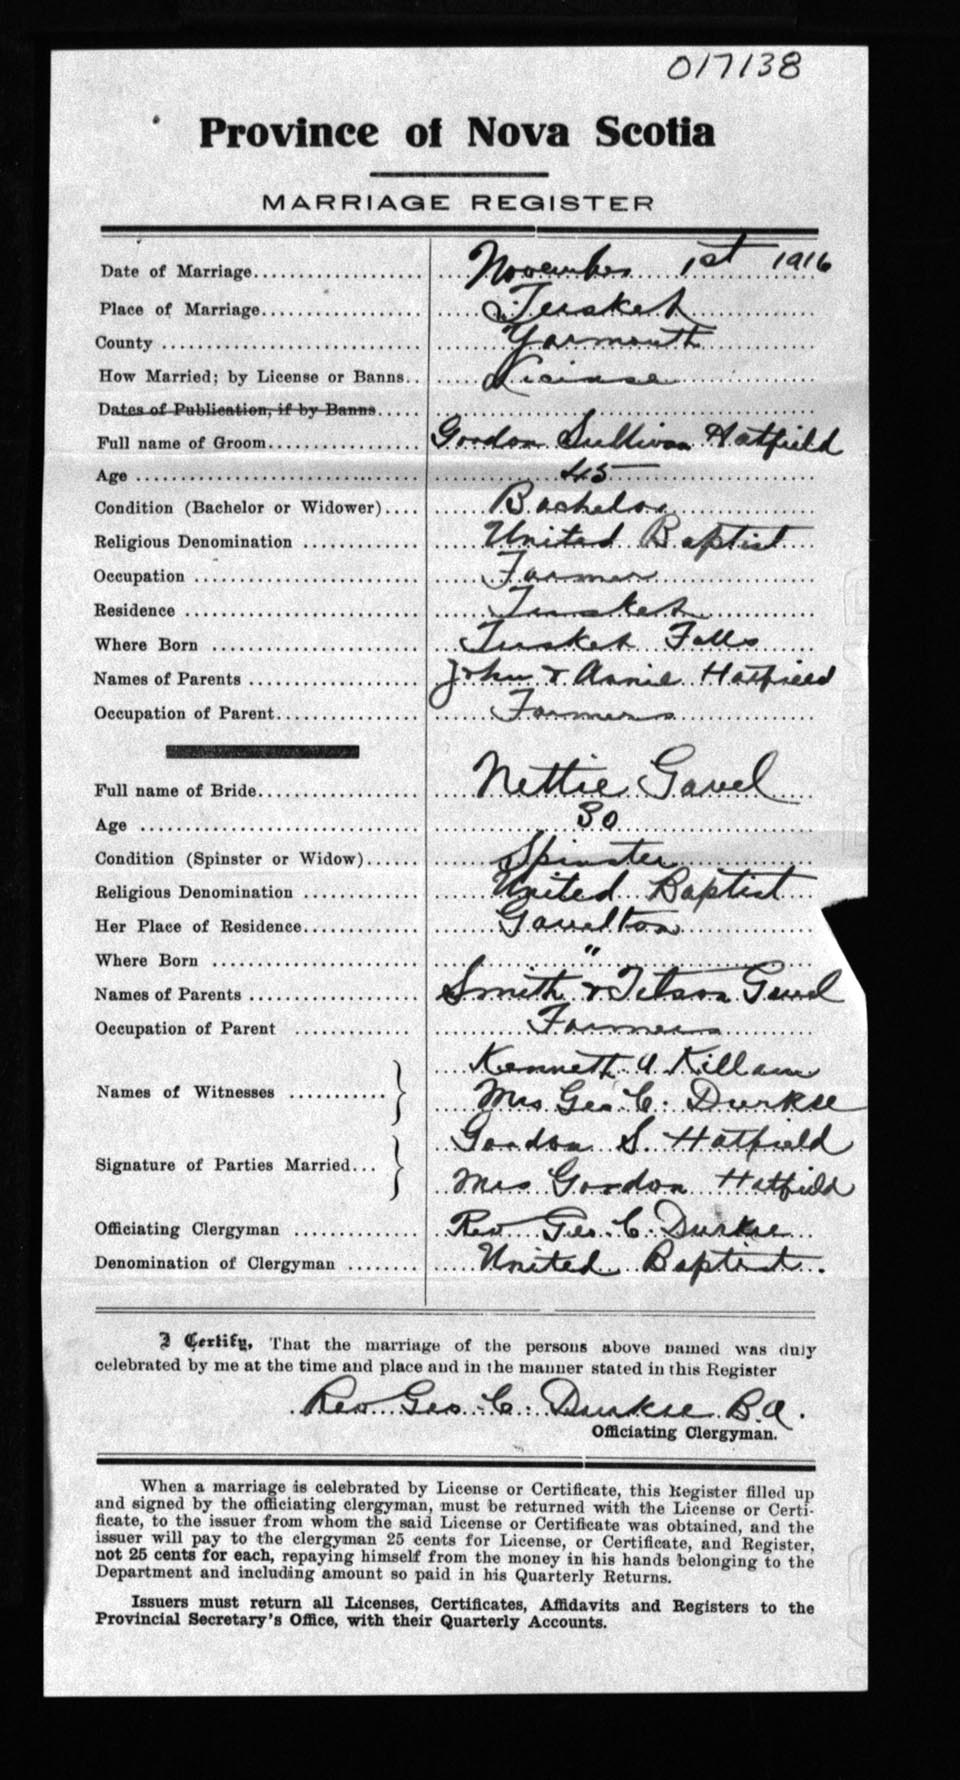 017138
Province of Nova Scotia
MARRIAGE REGISTER
Date of Marriage.................... November 1st 1916
Place of Marriage................... Tusket
County ............................. Yarmouth
How Married; by License or Banns.. License
Dates of Publication, if by Banns.....
Full name of Groom.................. Gordon Sullivan Hatfield
Age ................................ 45
Condition (Bachelor or Widower).... Bachelor
Religious Denomination ............. United Baptist
Occupation ......................... Farmer
Residence .......................... Tusket
Where Born ......................... Tusket Falls
Names of Parents ................... John & Annie Hatfield
Occupation of Parent................ Farmers
Full name of Bride.................. Nettie Gavel
Age ................................ 30
Condition (Spinster or Widow)...... Spinster
Religious Denomination ............. United Baptist
Her Place of Residence............. Gavelton
Where Born ......................... "
Names of Parents ................... Smith & Gavel
Occupation of Parent ............... Farmers
Names of Witnesses ........... } Kenneth A. Killam
Mrs Geo. C. Durkee
Signature of Parties Married... } Gordon S. Hatfield
Mrs Gordon Hatfield
Officiating Clergyman ............. Rev Geo. C. Durkee
Denomination of Clergyman ........ United Baptist.
I Certify, That the marriage of the persons above named was duly
celebrated by me at the time and place and in the manner stated in this Register
Rev Geo. C. Durkee B.A.
Officiating Clergyman.
When a marriage is celebrated by License or Certificate, this Register filled up
and signed by the officiating clergyman, must be returned with the License or Certi-
ficate, to the issuer from whom the said License or Certificate was obtained, and the
issuer will pay to the clergyman 25 cents for License, or Certificate, and Register,
not 25 cents for each, repaying himself from the money in his hands belonging to the
Department and including amount so paid in his Quarterly Returns.
Issuers must return all Licenses, Certificates, Affidavits and Registers to the
Provincial Secretary's Office, with their Quarterly Accounts.